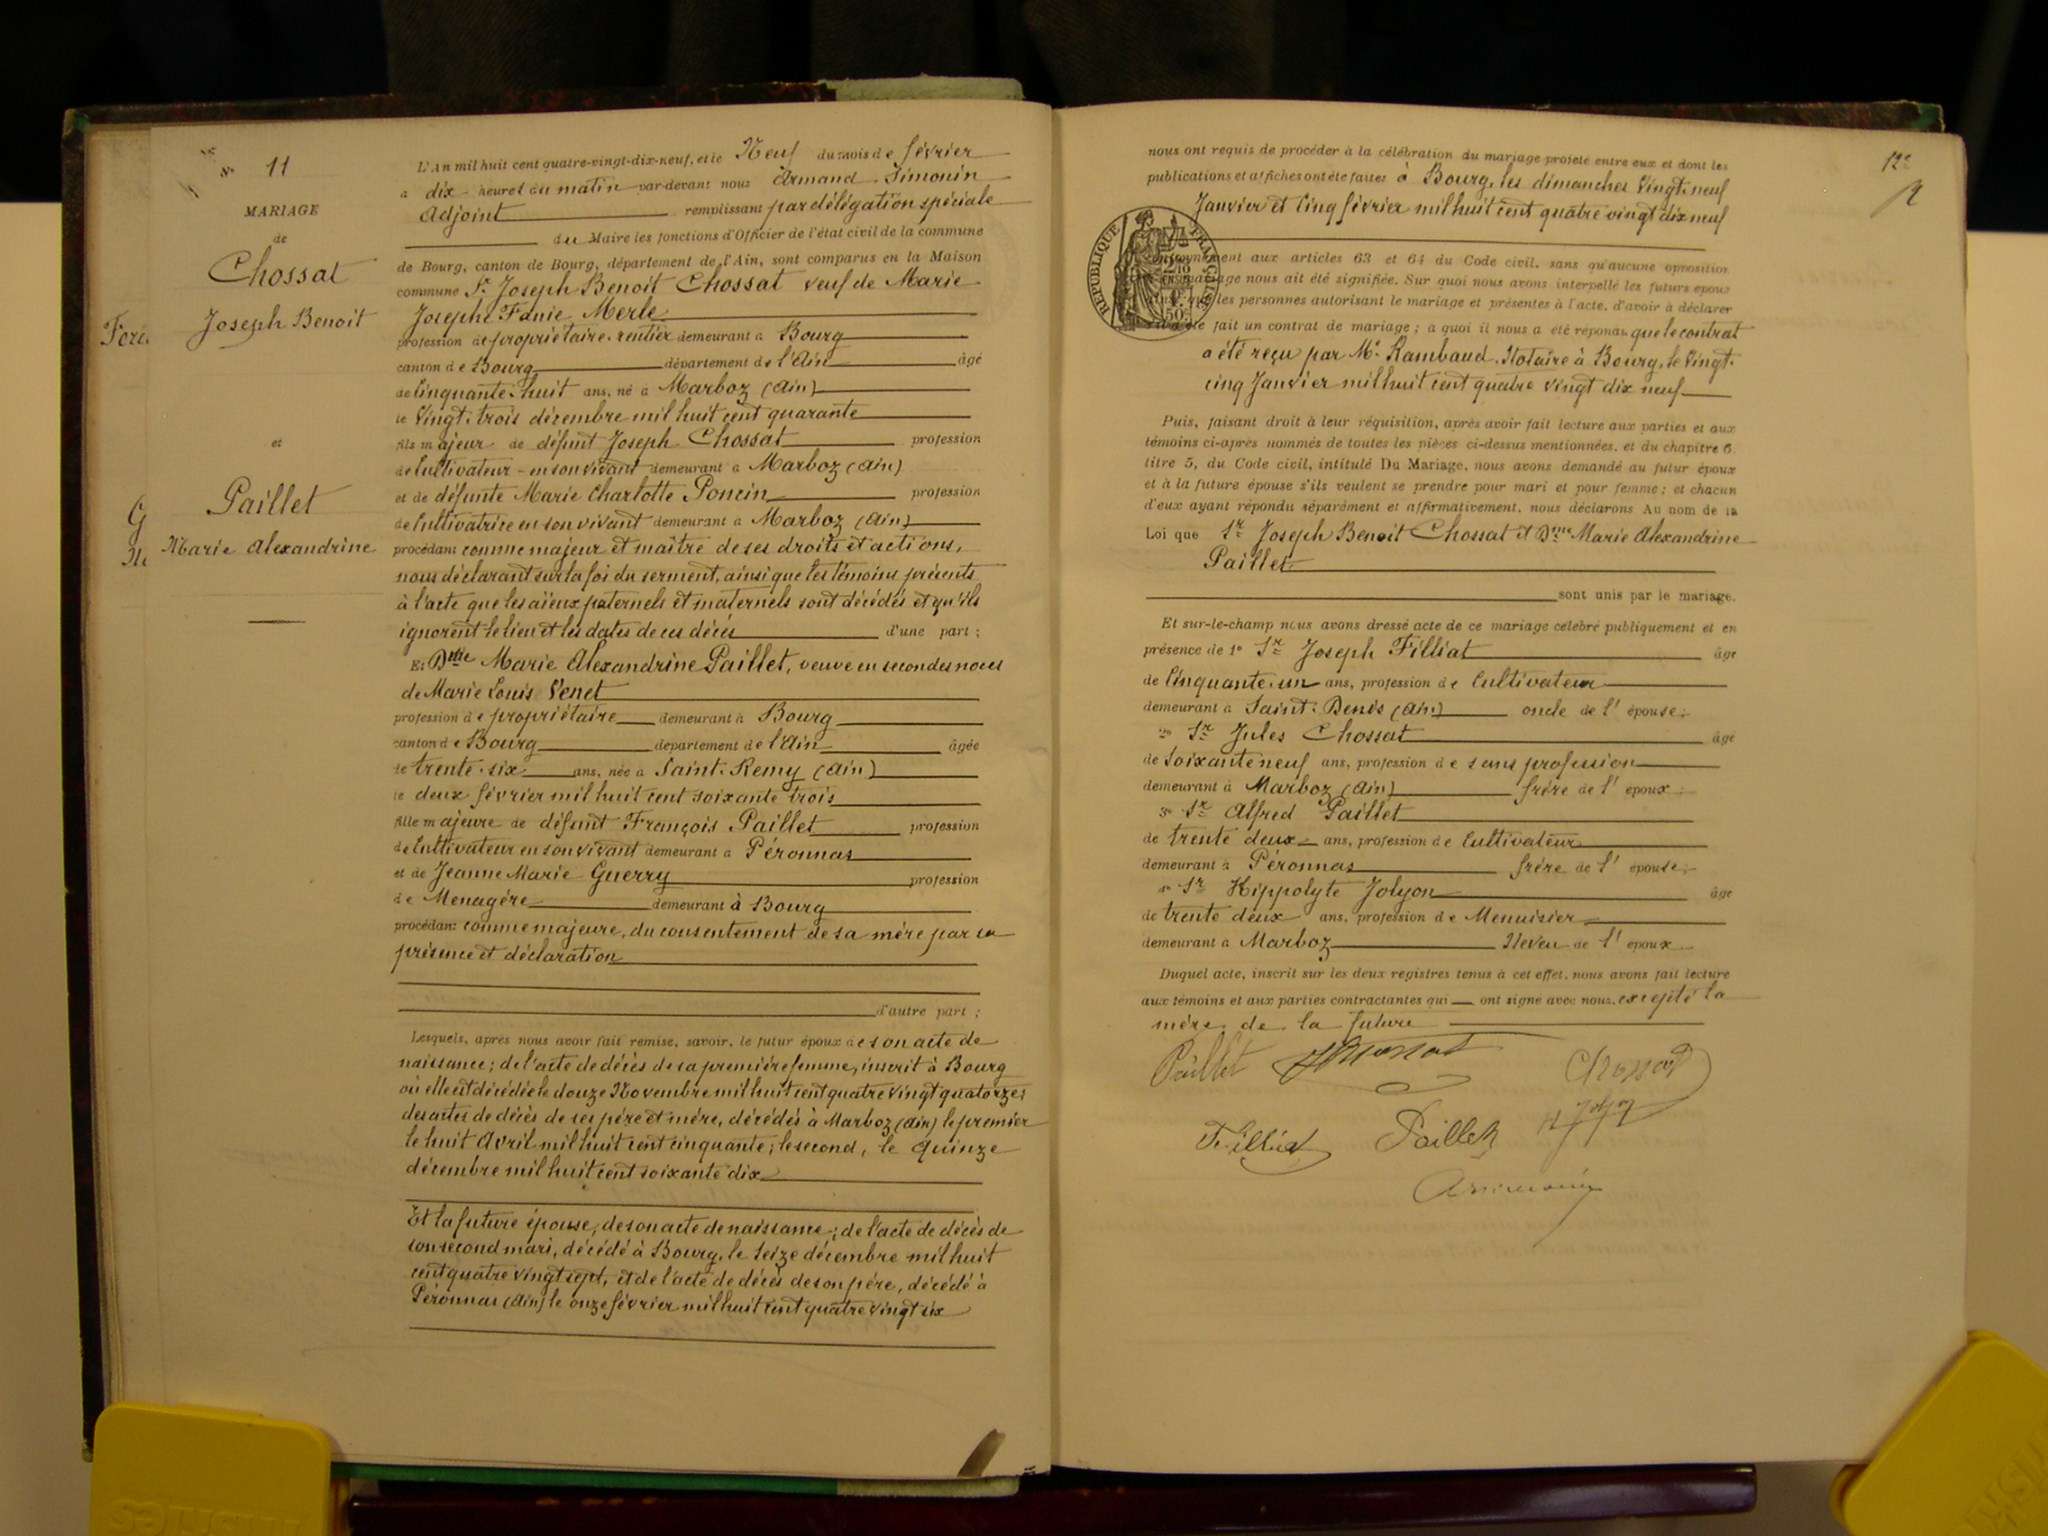 N° 11
MARIAGE
de
Chossat
Joseph Benoit
et
Paillet
Marie Alexandrine
L'An mil huit cent quatre-vingt-dix-neuf, et le Neuf du mois de février
à dix heures du matin par-devant nous Armand Simonin
Adjoint remplissant par délégation spéciale
du Maire les fonctions d'Officier de l'état civil de la commune
de Bourg, canton de Bourg, département de l'Ain, sont comparus en la Maison
commune Sr Joseph Benoit Chossat veuf de Marie
Josephe Fanie Merle
profession de propriétaire-rentier demeurant à Bourg
canton de Bourg département de l'Ain âgé
de Cinquante-huit ans, né à Marboz (Ain)
le Vingt-trois décembre mil huit cent quarante
fils majeur de défunt Joseph Chossat profession
de Cultivateur en son vivant demeurant à Marboz (Ain)
et de défunte Marie Charlotte Poncin profession
de Cultivatrice en son vivant demeurant à Marboz (Ain)
procédant comme majeur et maître de ses droits et actions,
nous déclarant sur la foi du serment, ainsi que les témoins présents
à l'acte que les aïeux paternels et maternels sont décédés et qu'ils
ignorent le lieu et les dates de ces décès d'une part ;
Et Delle Marie Alexandrine Paillet, veuve en secondes noces
de Marie Louis Venet
profession de propriétaire demeurant à Bourg
canton de Bourg département de l'Ain âgée
de trente-six ans, née à Saint-Remy (Ain)
le deux février mil huit cent soixante trois
fille majeure de défunt François Paillet profession
de Cultivateur en son vivant demeurant à Péronnas
et de Jeanne Marie Guerry profession
de Menagère demeurant à Bourg
procédant comme majeure, du consentement de sa mère par sa
présence et déclaration
d'autre part ;
Lesquels, après nous avoir fait remise, savoir, le futur époux de son acte de
naissance ; de l'acte de décès de sa première femme, inscrit à Bourg
où elle est décédée le douze Novembre mil huit cent quatre vingt quatorze ;
des actes de décès de ses père et mère, décédés à Marboz (Ain) le premier
le huit Avril mil huit cent cinquante ; le second, le Quinze
décembre mil huit cent soixante dix
Et la future épouse, de son acte de naissance ; de l'acte de décès de
son second mari, décédé à Bourg, le Seize décembre mil huit
cent quatre vingt sept, et de l'acte de décès de son père, décédé à
Péronnas (Ain) le onze février mil huit cent quatre vingt six
12e
nous ont requis de procéder à la célébration du mariage projeté entre eux et dont les
publications et affiches ont été faites à Bourg, les dimanches Vingt-neuf
Janvier et Cinq février mil huit cent quatre vingt dix neuf
RÉPUBLIQUE FRANÇAISE
aux articles 63 et 64 du Code civil, sans qu'aucune opposition
mariage nous ait été signifiée. Sur quoi nous avons interpellé les futurs époux
les personnes autorisant le mariage et présentes à l'acte, d'avoir à déclarer
fait un contrat de mariage ; à quoi il nous a été répondu que le contrat
a été reçu par Me Rambaud, Notaire à Bourg, le Vingt-
cinq Janvier mil huit cent quatre vingt dix neuf
Puis, faisant droit à leur réquisition, après avoir fait lecture aux parties et aux
témoins ci-après nommés de toutes les pièces ci-dessus mentionnées, et du chapitre 6
titre 5, du Code civil, intitulé Du Mariage, nous avons demandé au futur époux
et à la future épouse s'ils veulent se prendre pour mari et pour femme ; et chacun
d'eux ayant répondu séparément et affirmativement, nous déclarons Au nom de la
Loi que Sr Joseph Benoit Chossat et Dme Marie Alexandrine
Paillet
sont unis par le mariage.
Et sur-le-champ nous avons dressé acte de ce mariage célébré publiquement et en
présence de 1° Sr Joseph Filliat âgé
de Cinquante-un ans, profession de Cultivateur
demeurant à Saint-Denis (Ain) oncle de l'épouse ;
2° Sr Jules Chossat âgé
de Soixante neuf ans, profession de sans profession
demeurant à Marboz (Ain) frère de l'époux ;
3° Sr Alfred Paillet
de trente deux ans, profession de Cultivateur
demeurant à Péronnas frère de l'épouse ;
4° Sr Hippolyte Jolyon âgé
de trente deux ans, profession de Menuisier
demeurant à Marboz Neveu de l'époux
Duquel acte, inscrit sur les deux registres tenus à cet effet, nous avons fait lecture
aux témoins et aux parties contractantes qui ont signé avec nous, excepté la
mère de la future
Paillet Chossat
Filliat Paillet